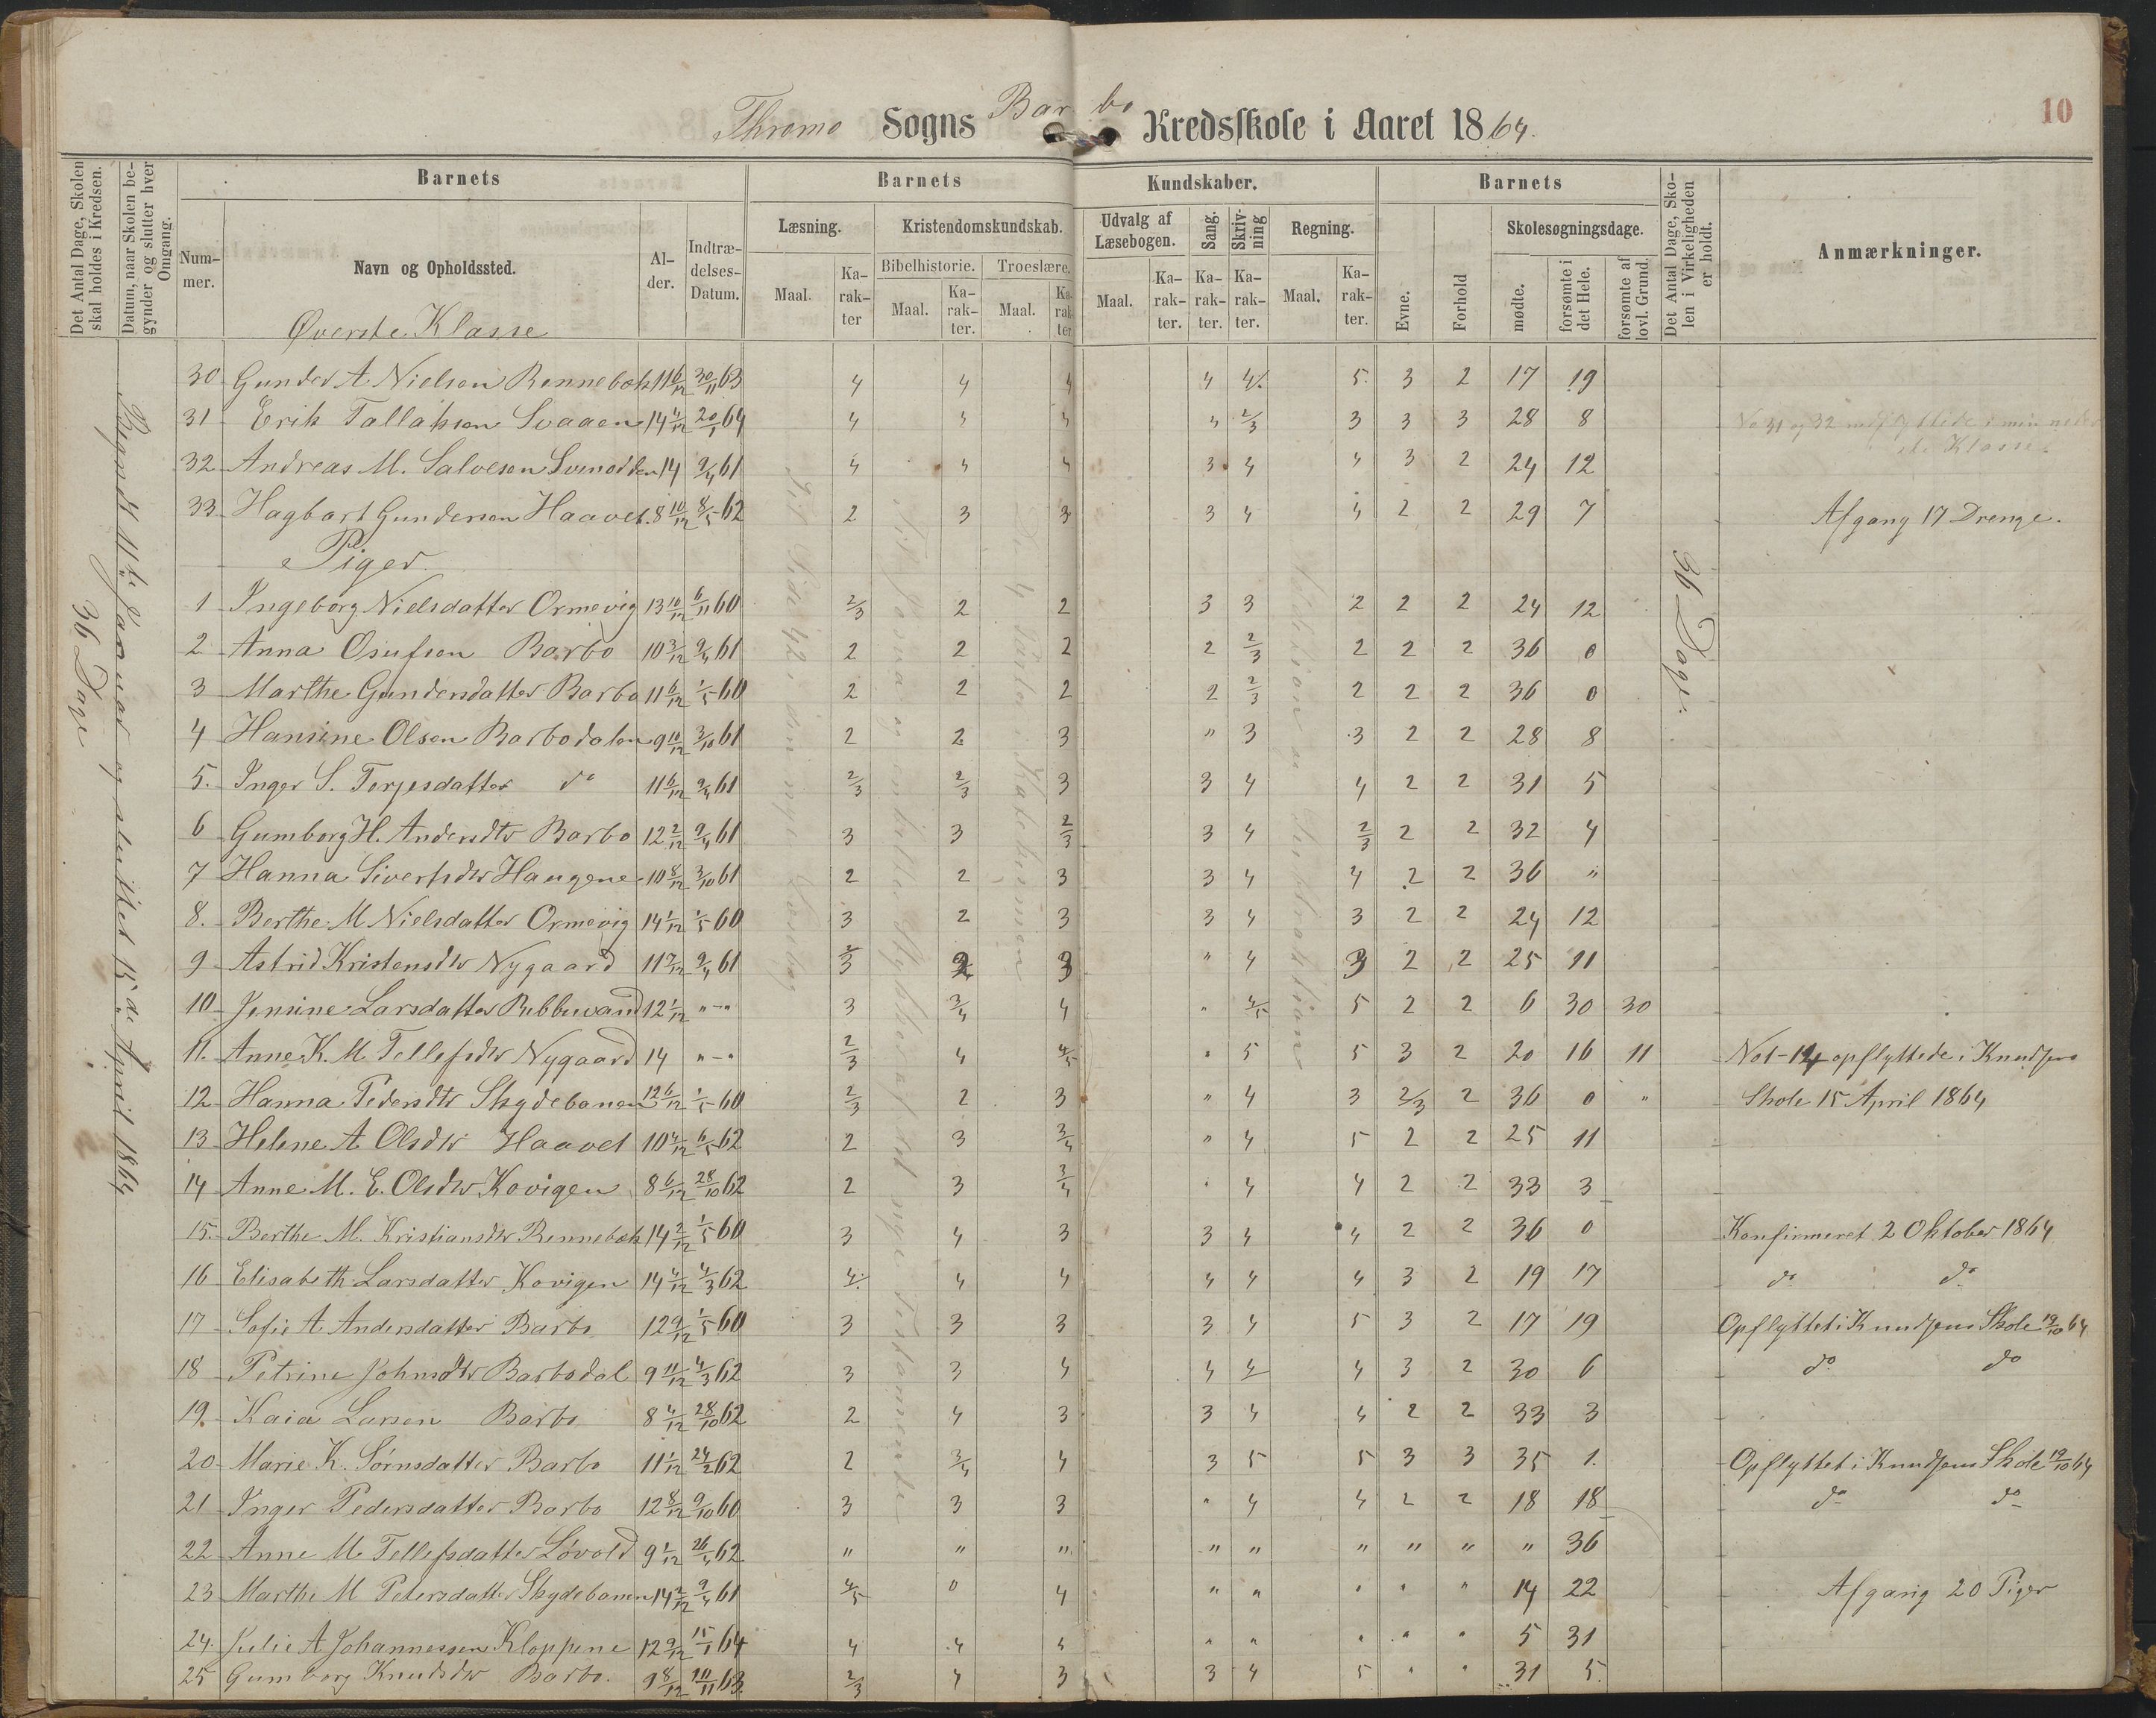 Thromø Sogns Barbo Kredsskole i Aaret 1864.
10
Det Antal Dage, Skolen skal holdes i Kredsen.
Datum, naar Skolen begynder og slutter hver Omgang.
Barnets
Barnets
Kundskaber.
Barnets
Det Antal Dage, Skolen i Virkeligheden er holdt.
Anmærkninger.
Nummer.
Navn og Opholdssted.
Alder.
Indtrædelses-Datum.
Læsning.
Kristendomskundskab.
Udvalg af Læsebogen.
Sang.
Skrivning
Regning.
Evne.
Forhold
Skolesøgningsdage.
Bibelhistorie.
Troeslære.
Maal.
Karakter
Maal.
Karakter.
Maal.
Karakter.
Maal.
Karakter.
Karakter.
Karakter.
Maal.
Karakter.
mødte.
forsømte i det Hele.
forsømte af lovl. Grund.
Øverste Klasse
36 Dage
Begyndt 11te Januar og sluttet 15de April 1864
36 Dage.
30 Gunder A. Nielsen Rennebæk 11 6/12 30/11 63 4 4 4 4 4 5 3 2 17 19
31 Erik Tallaksen Svaaen 14 4/12 20/1 64 4 4 4 4 2/3 3 3 3 28 8
32 Andreas M. Salvesen Svinodden 14 9/4 61 4 4 4 3 4 4 3 2 24 12
33 Hagbart Gundersen Haavet 8 10/12 8/5 62 2 3 3 3 4 4 2 2 29 7 Afgang 17 Drenge.
Piger.
1 Ingeborg Nielsdatter Ormevig 13 10/12 6/11 60 2/3 2 2 3 3 2 2 2 24 12
2 Anna Osufsen Barbo 10 3/12 9/4 61 2 2 2 2 2/3 2 2 2 36 0
3 Marthe Gundersdatter Barbo 11 6/12 1/5 60 2 2 2 2 2/3 2 2 2 36 0
4 Hansine Olsen Barbodalen 9 10/12 3/10 61 2 2 3 " 3 3 2 2 28 8
5. Inger S. Terjesdatter do 11 6/12 9/4 61 2/3 2/3 3 3 4 4 2 2 31 5
6 Gumborg H. Andersdtr Barbo 12 2/12 9/4 61 3 3 2/3 3 4 2/3 2 2 32 4
7 Hanna Sivertsdtr Haugene 10 8/12 3/10 61 2 2 3 3 4 4 2 2 36 "
8. Berthe M Nielsdatter Ormevig 14 1/12 1/5 60 3 2 3 3 4 3 2 2 24 12
9 Astrid Kristensdtr Nygaard 11 9/12 9/4 61 2/3 2 3 " 4 3 2 2 25 11
10 Jensine Larsdatter 12 1/12 "-" 3 3/4 4 " 4/5 5 2 2 6 30 30
11. Anne K. M Tellefsdtr Nygaard 14 "-" 2/3 4 4/5 " 5 5 3 2 20 16 11 No 1-14 opflyttede i Knudsens
12 Hanna Pedersdtr Skydebanen 12 6/12 1/5 60 2/3 2 3 " 4 3 2/3 2 36 0 " Skole 15 April 1864
13 Helene A Olsdtr Haavet 10 4/12 6/5 62 2 3 3/4 " 4 5 2 2 25 11
14 Anne M. E. Olsdtr Kovigen 8 6/12 28/10 62 2 3 3/4 " 4 4 2 2 33 3
15. Berthe M. Kristiansdtr Rennebæk 14 2/12 1/5 60 3 4 3 3 4 4 2 2 36 0 Konfirmeret 2 Oktober 1864
16 Elisabeth Larsdatter Kovigen 14 4/12 4/3 62 4 4 4 4 4 4 3 2 19 17 do do
17 Sofie A. Andersdatter Barbo 12 9/12 1/5 60 3 3 3 3 4 5 3 2 17 19 Opflyttet i Knudsens Skole 19/10 64
18 Petrine Johnsdtr Barbodal 9 11/12 4/3 62 3 3 4 4 4 4 3 2 30 6 do do
19. Kaia Larsen Barbo 8 4/12 28/10 62 2 4 3 3 4 4 2 2 33 3
20 Marie K. Sørnsdatter Barbo 11 1/12 24/2 62 2 3/4 4 3 5 5 3 3 35 1. Opflyttet i Knudsens Skole 19/10 64
21 Inger Pedersdatter Barbo 12 8/12 9/10 60 3 3 3 " 4 4 2 2 18 18 do do
22 Anne M. Tellefsdatter Løvold 9 1/12 26/4 62 " " " " " " " " " 36
23 Marthe M Petersdatter Skydebanen 14 2/12 9/4 61 4/5 0 4 " " " " " 14 22 Afgang 20 Piger
24. Julie A Johannessen Kloppene 12 9/12 15/1 64 4 4 4 " " " " " 5 31
25 Gumborg Knudsdtr Barbo. 9 8/12 10/11 63. 2/3 4 3 3 4 5 " " 31 5.